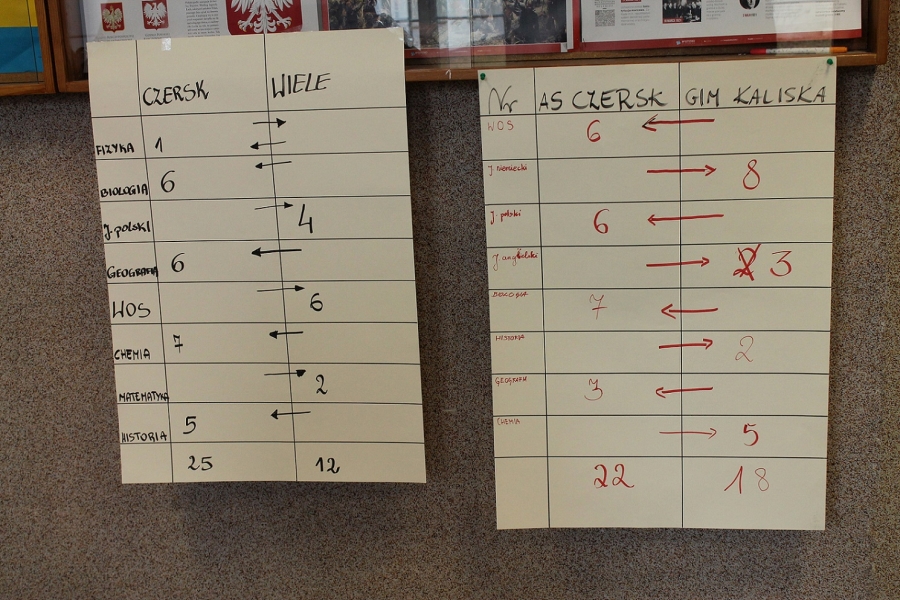 CZERSK WIELE
FIZYKA 1
BIOLOGIA 6
J. polski 4
GEOGRAFIA 6
WOS 6
CHEMIA 7
MATEMATYKA 2
HISTORIA 5
25 12
Nr AS CZERSK GIM KALISKA
WOS 6
J niemiecki 8
J. polski 6
J. angielski 2 3
BIOLOGIA 7
HISTORIA 2
GEOGRAFIA 3
CHEMIA 5
22 18